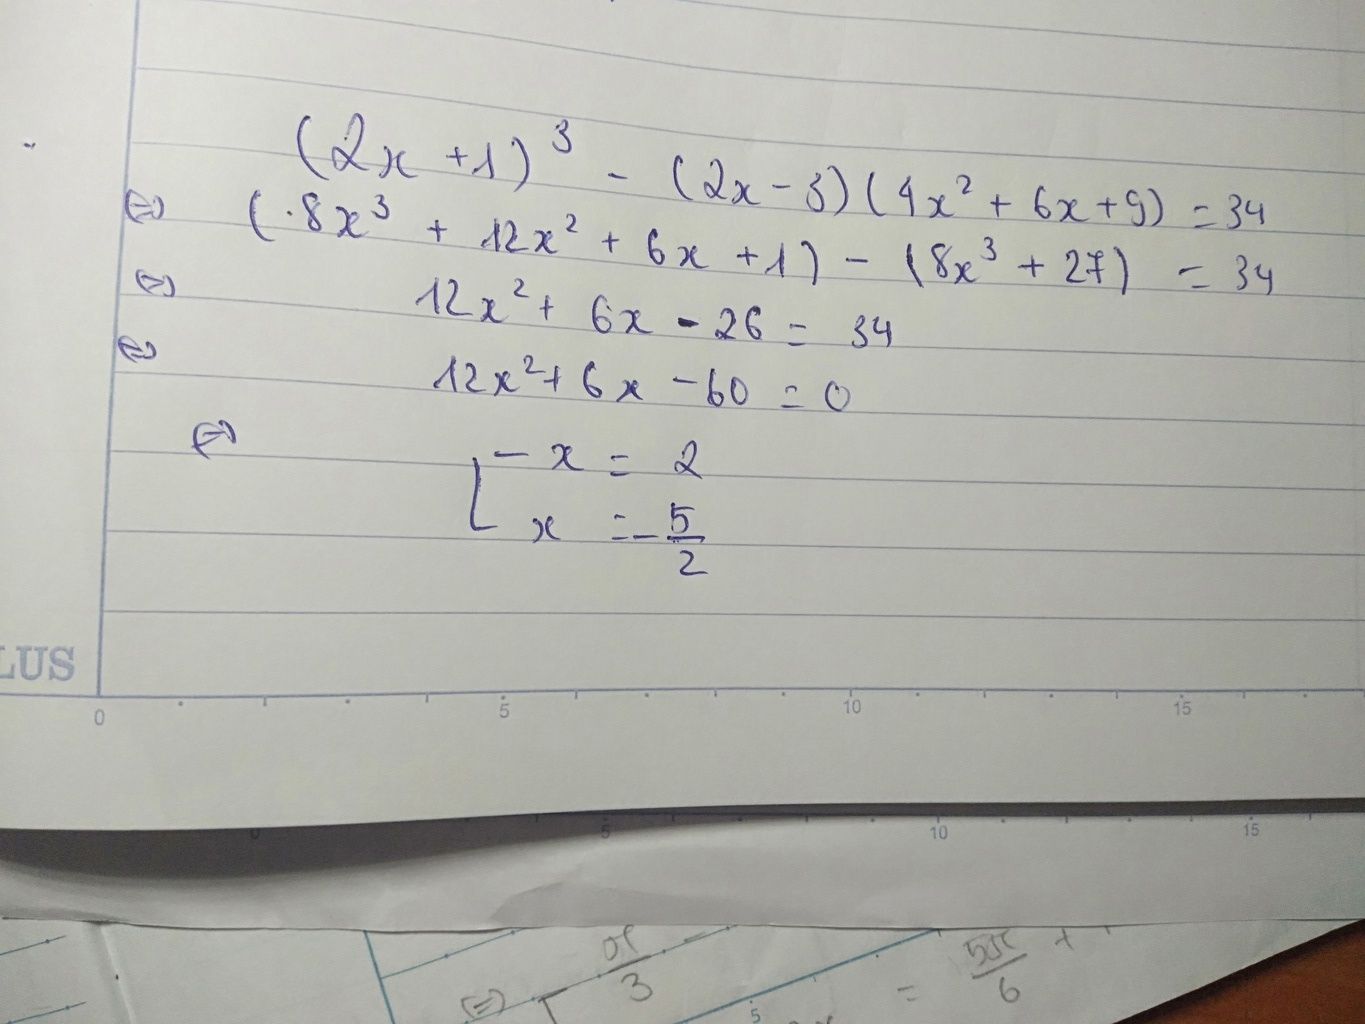 (2x + 1)³ - (2x - 3)(4x² + 6x + 9) = 34
(=) (8x³ + 12x² + 6x + 1) - (8x³ + 27) = 34
(=) 12x² + 6x - 26 = 34
(=) 12x² + 6x - 60 = 0
(=) [ x = 2
x = -5/2
LUS
0 5 10 15
0 5 10 15
(=) [ π/3
= 5π/6 +
5